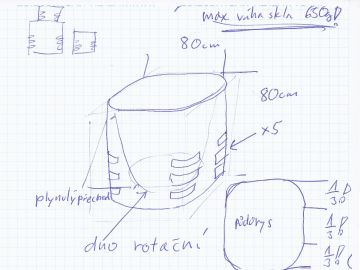 max váha skla 650g
80cm
80cm
x5
plynulý přechod
půdorys
dno rotační
1/3 D
1/3 D
1/3 D